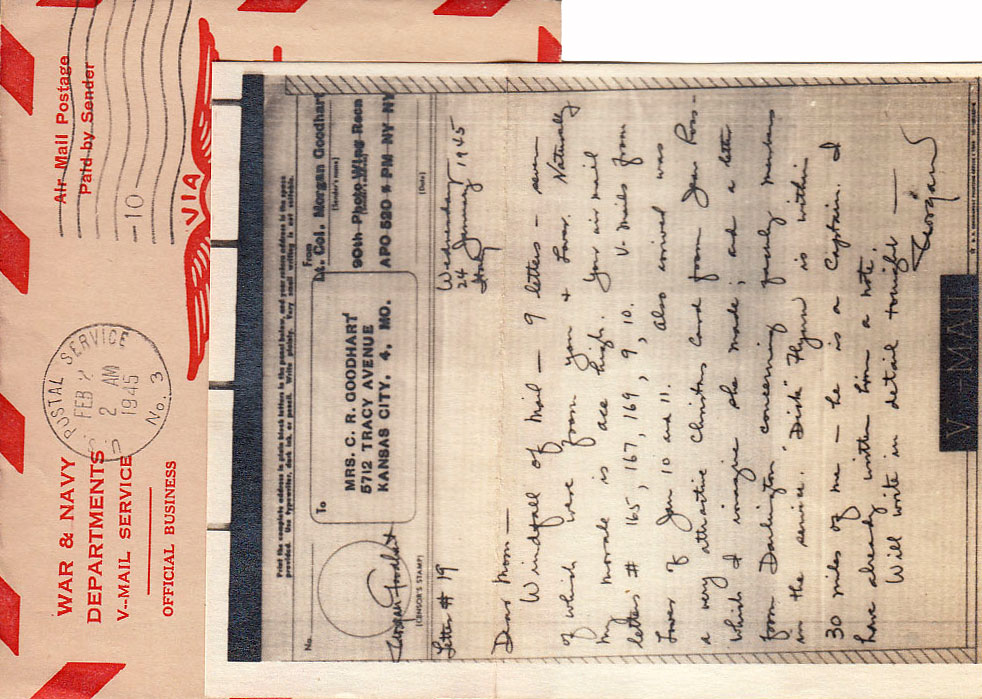 WAR & NAVY
DEPARTMENTS
V--MAIL SERVICE
OFFICIAL BUSINESS
U.S. POSTAL SERVICE
FEB 2
2 AM
1945
No. 3
VIA
Air Mail Postage
Paid by Sender
-10-
Print the complete address in plain block letters in the panel below, and your return address in the space
provided. Use typewriter, dark ink, or pencil. Write plainly. Very small writing is not suitable.
No.
To
MRS. C. R. GOODHART
5712 TRACY AVENUE
KANSAS CITY, 4, MO.
From
Lt. Col. Morgan Goodhart
(Sender's name)
90th Photo Wing Recn
APO 520 % PM NY NY
(Date)
Morgan Goodhart
(CENSOR'S STAMP)
Letter # 19
Wednesday
24 January 1945
Dear Mom —
Windfall of mail — 9 letters — seven
of which were from you + Naturally
my morale is ace high. Your air mail
letters # 165, 167, 169, 9, 10. V-mails from
of Jan 10 and 11. Also arrived was
a very attractive Christmas Card from Jean Ross-
which I imagine she made; and a letter
from Darlington concerning faculty members
in the service. "Dick" Flynn is within
30 miles of me — he is a Captain. I
have already written him a note.
Will write in detail tonight —
Morgan
V-MAIL